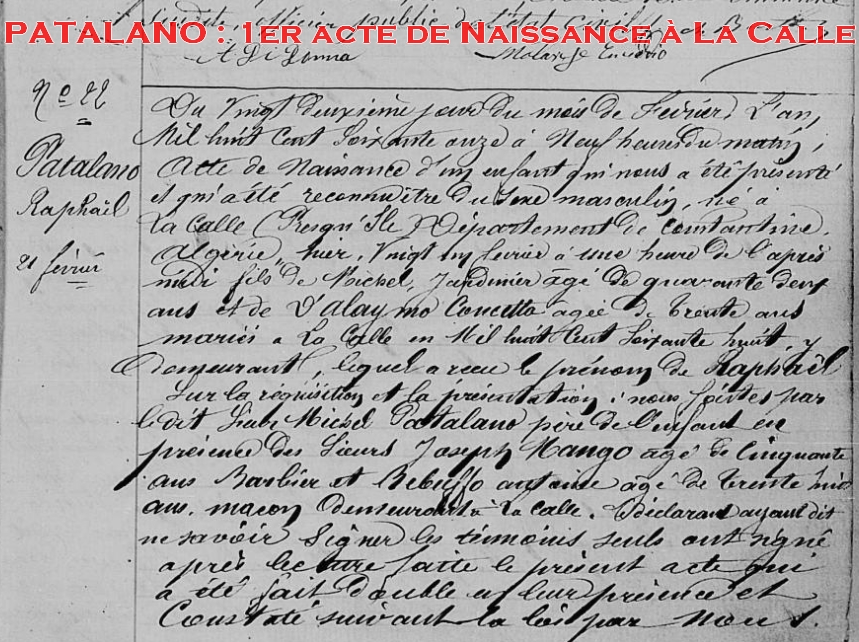 PATALANO : 1er acte de Naissance à La Calle
officier public de l'état civil
A Di Donna
No 22
Patalano
Raphaël
21 fevrier
Du Vingt deuxième jour du mois de Fevrier, L'an,
Mil huit Cent Soixante onze à Neuf heures du matin,
Acte de Naissance d'un enfant qui nous a été présenté
et qui a été reconnu être du sexe masculin, né à
La Calle (Presqu'Ile) Département de Constantine,
Algérie, hier, Vingt un fevrier à une heure de l'après
midi fils de Michel, Jardinier âgé de quarante deux
ans et de D'alaymo Concetta agée de trente ans
mariés à La Calle en Mil huit Cent Soixante huit, y
demeurant, lequel a reçu le prénom de Raphaël
Sur la réquisition et la présentation à nous faites par
le dit Sieur Michel Patalano père de l'enfant en
présence des Sieurs Joseph Mango agé de Cinquante
ans Barbier et Rebuffo antoine âgé de trente huit
ans, maçon demeurants à La Calle. Déclarant ayant dit
ne savoir Signer les témoins seuls ont signé
après lecture faite le présent acte qui
a été fait double en leur présence et
Constaté suivant la loi par Nous.